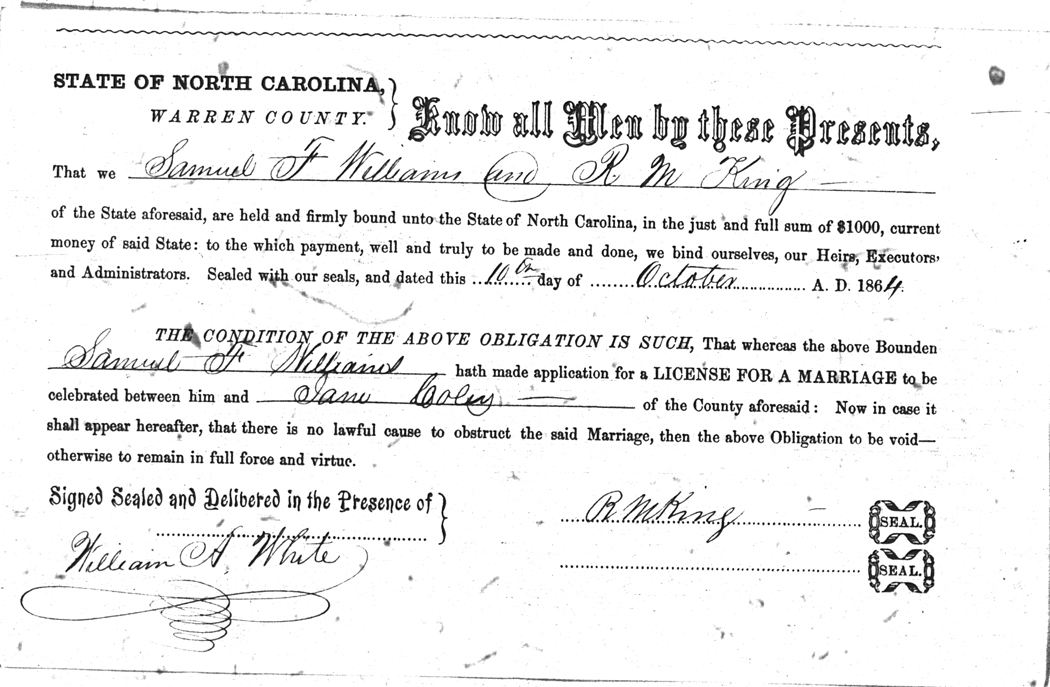 STATE OF NORTH CAROLINA,
WARREN COUNTY.
Know all Men by these Presents,
That we Samuel F Williams and R. M King
of the State aforesaid, are held and firmly bound unto the State of North Carolina, in the just and full sum of $1000, current
money of said State: to the which payment, well and truly to be made and done, we bind ourselves, our Heirs, Executors,
and Administrators. Sealed with our seals, and dated this 10th day of October A. D. 1864.
THE CONDITION OF THE ABOVE OBLIGATION IS SUCH, That whereas the above Bounden
Samuel F. Williams hath made application for a LICENSE FOR A MARRIAGE to be
celebrated between him and Jane Coley of the County aforesaid: Now in case it
shall appear hereafter, that there is no lawful cause to obstruct the said Marriage, then the above Obligation to be void—
otherwise to remain in full force and virtue.
Signed Sealed and Delivered in the Presence of
William A. White
R. M King SEAL.
SEAL.